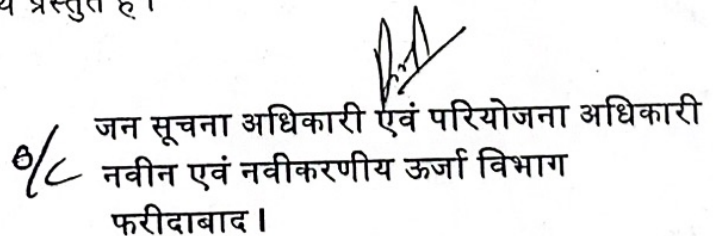 प्रस्तुत है।
जन सूचना अधिकारी एवं परियोजना अधिकारी
O/C नवीन एवं नवीकरणीय ऊर्जा विभाग
फरीदाबाद।